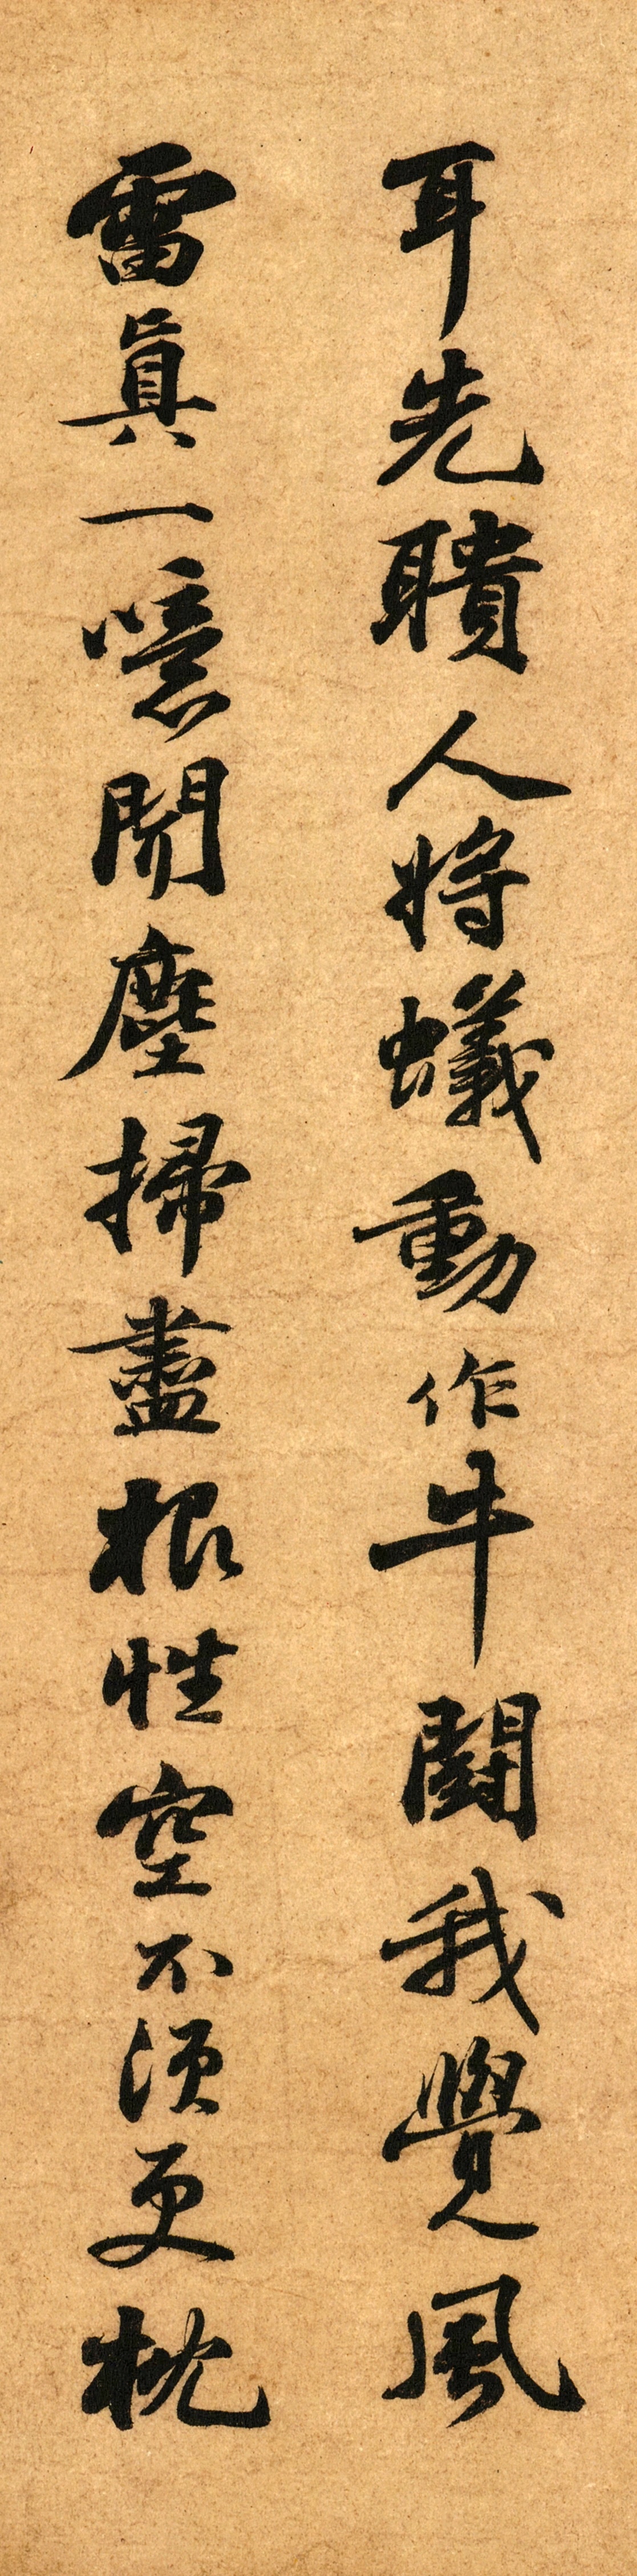 耳先聵人將蟻動作牛鬭我覺風
雷真一噫聞塵掃盡根性空不須更枕